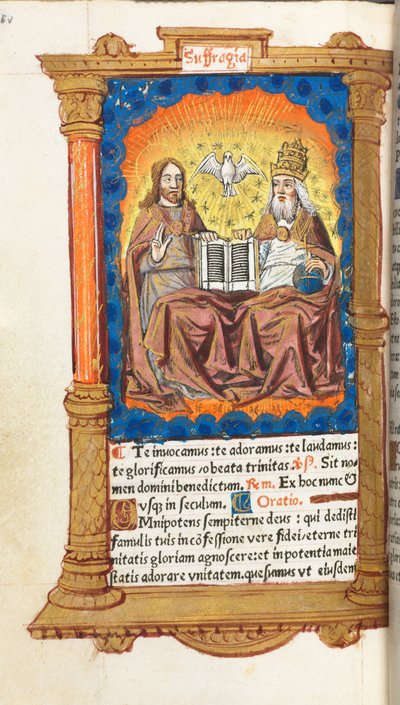 Suffragia
Te invocamus: te adoramus: te laudamus:
te glorificamus o beata trinitas. ℣. Sit no
men domini benedictum. ℞. Ex hoc nunc &
usq; in seculum. Oratio.
OMnipotens sempiterne deus: qui dedisti
famulis tuis in cõfessione vere fidei: eterne tri
nitatis gloriam agnoscere: et in potentia maie
statis adorare vnitatem. quesumus vt eiusdem